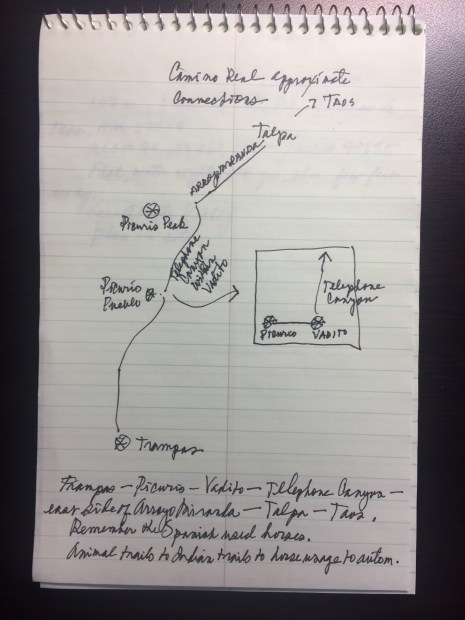 Camino Real approximate
connections
→ Taos
Talpa
Arroyo Miranda
Picuris Peak
Telephone
Canyon
Vadito
Picuris
Pueblo
Telephone
Canyon
Picuris
VADITO
Trampas
Trampas – Picuris – Vadito – Telephone Canyon –
east side of Arroyo Miranda – Talpa – Taos.
Remember the Spanish used horses.
Animal trails to Indian trails to horse usage to autom.